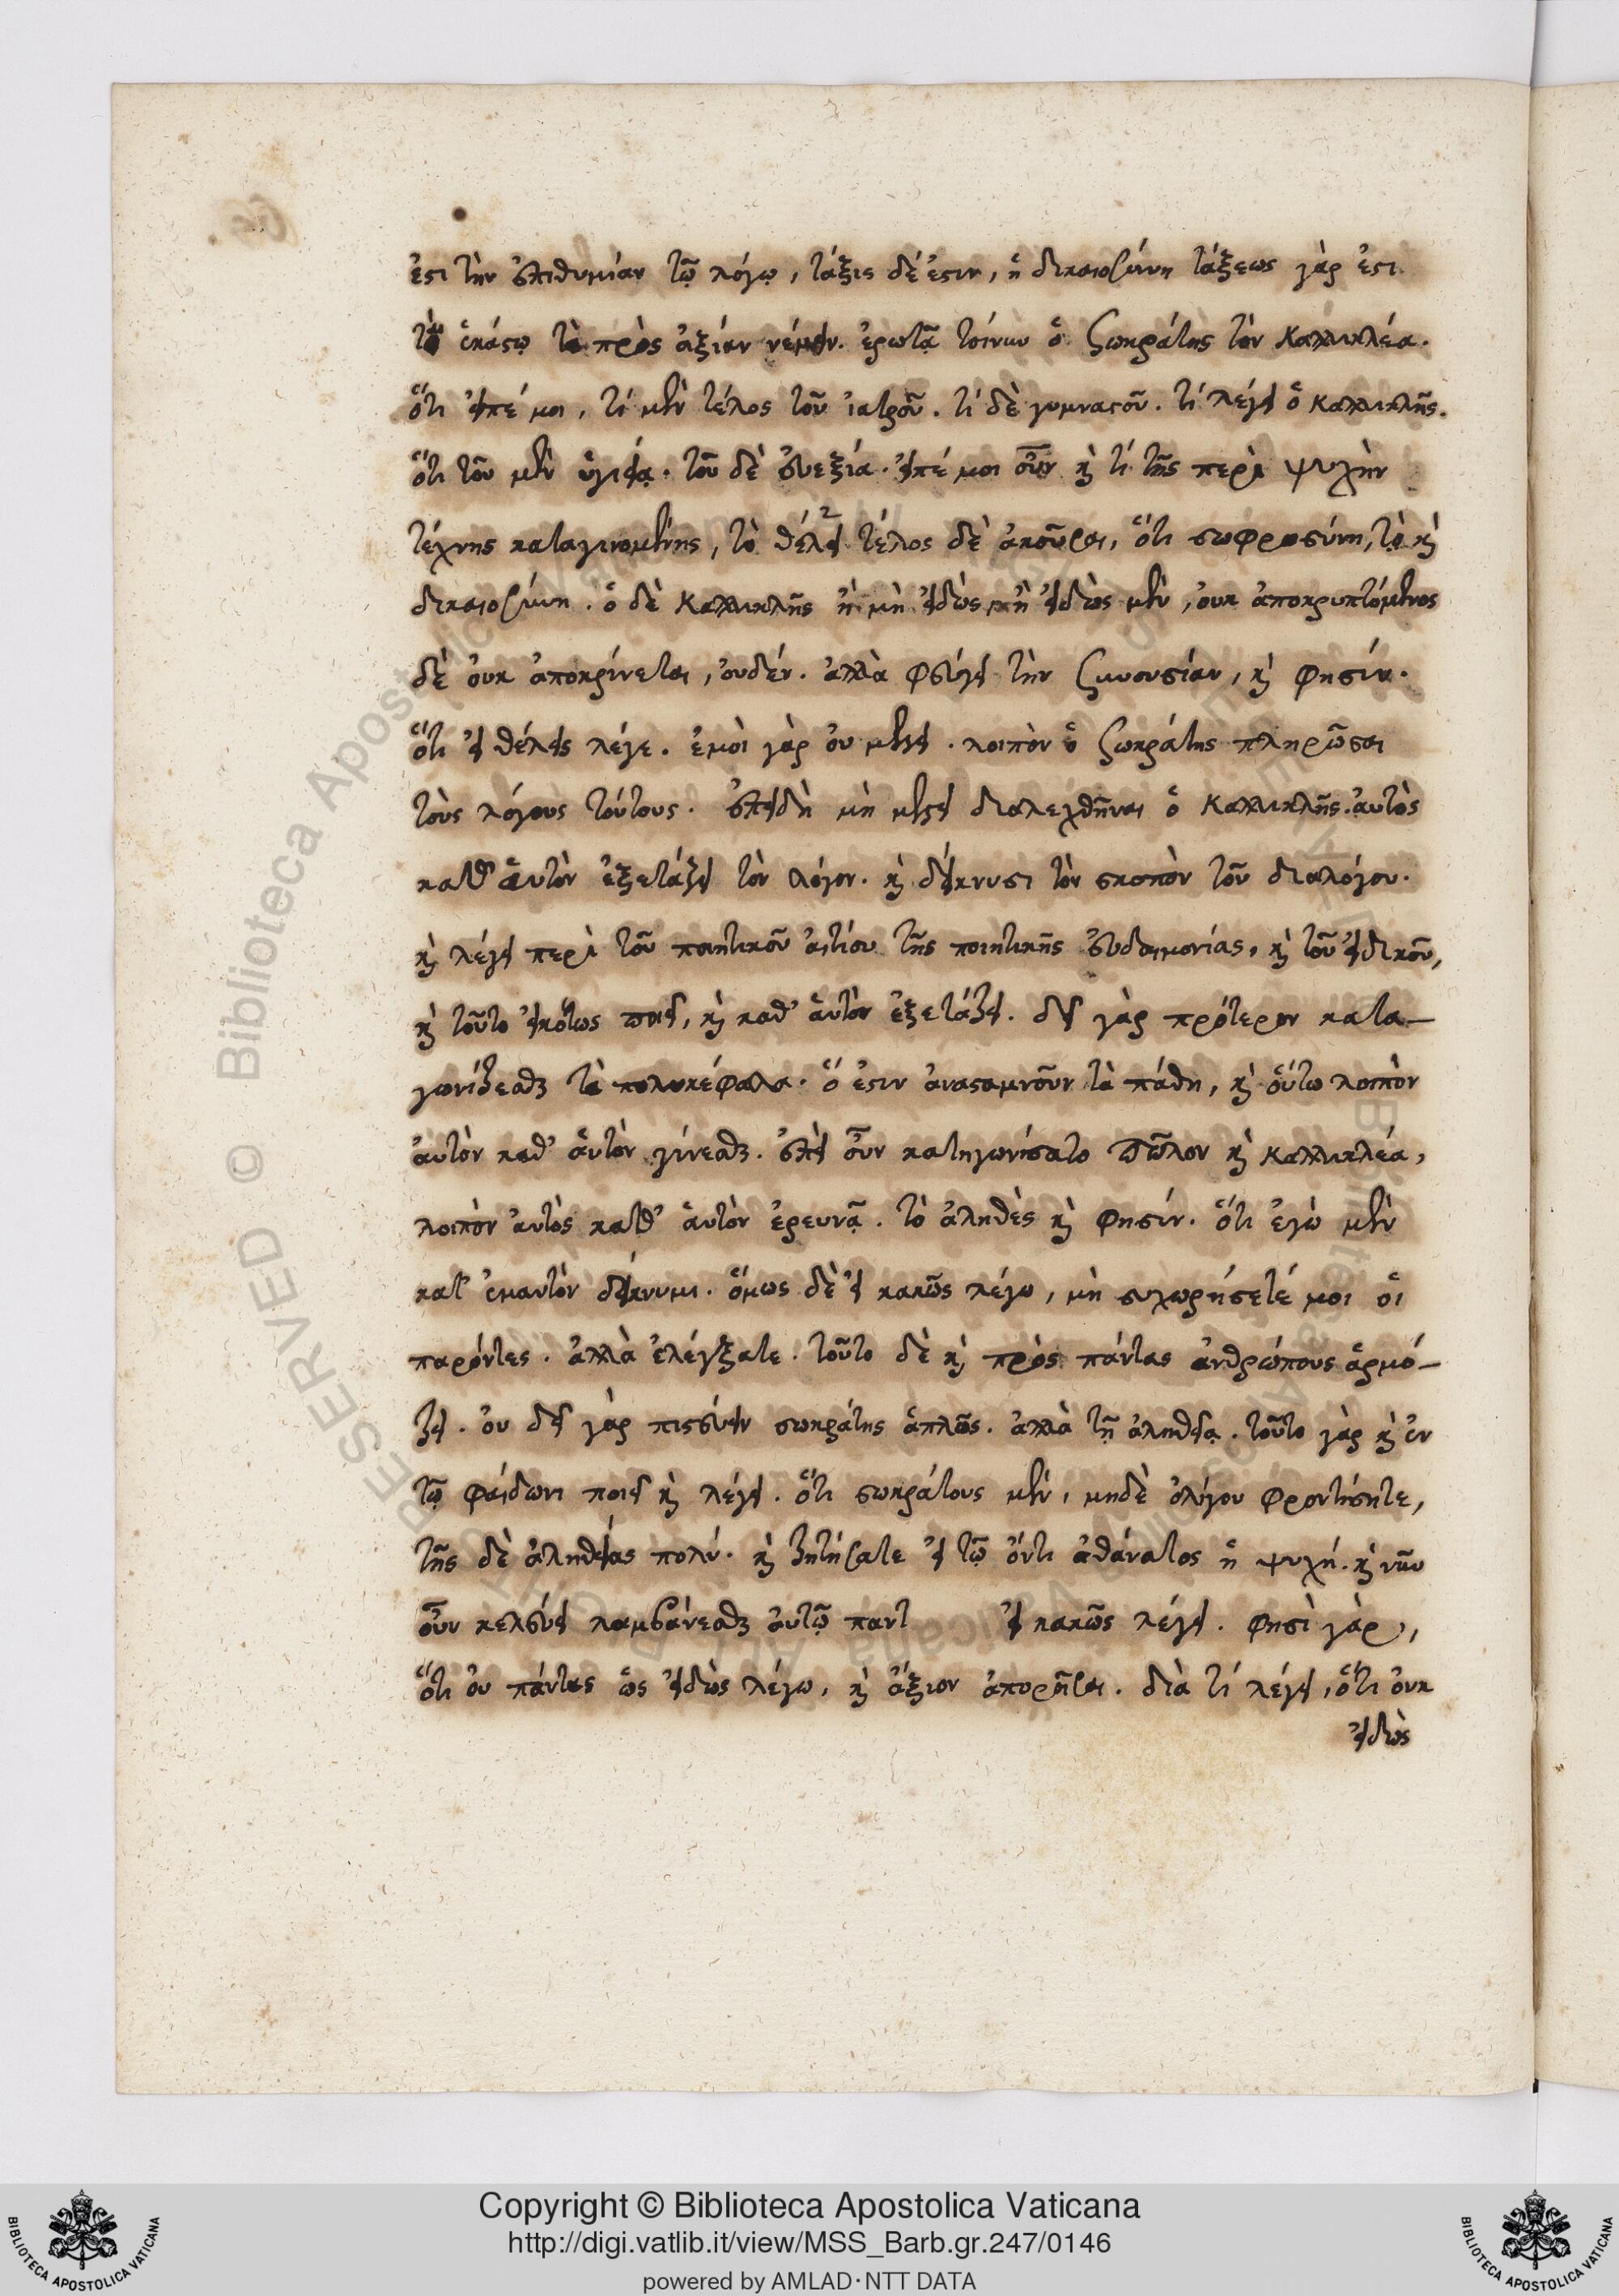 ἐστὶ τὴν ἐπιθυμίαν τῷ λόγῳ, τάξις δέ ἐστιν, ἡ δικαιοσύνη τάξεως γάρ ἐστι
τὸ ἑκάστῳ τὸ πρὸς ἀξίαν νέμειν. ἐρωτᾷ τοίνυν ὁ Σωκράτης τὸν Καλλικλέα.
ὅτι εἰπέ μοι, τί μὲν τέλος τοῦ ἰατροῦ. τί δὲ γυμναστοῦ. τί λέγει ὁ Καλλικλῆς.
ὅτι τοῦ μὲν ὑγιεία. τοῦ δὲ εὐεξία. εἰπέ μοι οὖν καὶ τί τῆς περὶ ψυχὴν
τέχνης καταγινομένης, τὸ θέλει τέλος δὲ ἀκοῦσαι, ὅτι σωφροσύνη, καὶ
δικαιοσύνη. ὁ δὲ Καλλικλῆς ἢ μὴ εἰδὼς, ἢ εἰδὼς μὲν, οὐκ ἀποκρυπτόμενος
δὲ οὐκ ἀποκρίνεται, οὐδέν. ἀλλὰ φεύγει τὴν συνουσίαν, καὶ φησίν.
ὅτι εἰ θέλεις λέγε. ἐμοὶ γὰρ οὐ μέλει. λοιπὸν ὁ Σωκράτης πληρῶσαι
τοὺς λόγους τούτους. ἐπειδὴ μὴ διαλεχθῆναι ὁ Καλλικλῆς. αὐτὸς
καθ' αὑτὸν ἐξετάζει τὸν λόγον. καὶ δείκνυσι τὸν σκοπὸν τοῦ διαλόγου.
καὶ λέγει περὶ τοῦ ποιητικοῦ αἰτίου τῆς ποιητικῆς εὐδαιμονίας, καὶ τοῦ εἰδικοῦ,
καὶ τοῦτο εἰκότως ποιεῖ, καὶ καθ' αὑτὸν ἐξετάζει. δεῖ γὰρ πρότερον κατα-
γωνίζεσθαι τὰ πολυκέφαλα. ὅ ἐστιν τὰ πάθη, καὶ οὕτω λοιπὸν
αὐτὸν καθ' αὑτὸν γίνεσθαι. ἐπεὶ οὖν κατηγωνίσατο Πῶλον καὶ Καλλικλέα,
λοιπὸν αὐτὸς καθ' αὑτὸν ἐρευνᾷ. τὸ ἀληθὲς καὶ φησίν. ὅτι ἐγὼ μὲν
κατ' ἐμαυτὸν δείκνυμι. ὅμως δὲ εἰ κακῶς λέγω, μὴ συχωρήσετέ μοι οἱ
παρόντες. ἀλλὰ ἐλέγξατε. τοῦτο δὲ καὶ πρὸς πάντας ἀνθρώπους ἁρμό-
ζει. οὐ δεῖ γὰρ πιστεύειν σωκράτης ἁπλῶς. ἀλλὰ τῇ ἀληθείᾳ. τοῦτο γὰρ καὶ ἐν
τῷ Φαίδωνι ποιεῖ καὶ λέγει. ὅτι σωκράτους μὲν, μηδὲ ὀλίγου φροντίσητε,
τῆς δὲ ἀληθείας πολύ. καὶ ζητήσατε εἰ τῷ ὄντι ἀθάνατος ἡ ψυχή. καὶ νῦν
οὖν κελεύει λαμβάνεσθαι αὐτῷ παντ εἰ κακῶς λέγει. φησὶ γὰρ,
ὅτι οὐ πάντας ὡς εἰδὼς λέγω, καὶ ἄξιον ἀπορῆσαι. διὰ τί λέγει, ὅτι οὐκ
εἰδὼς
Copyright © Biblioteca Apostolica Vaticana
http://digi.vatlib.it/view/MSS_Barb.gr.247/0146
powered by AMLAD·NTT DATA
BIBLIOTECA APOSTOLICA VATICANA
BIBLIOTECA APOSTOLICA VATICANA